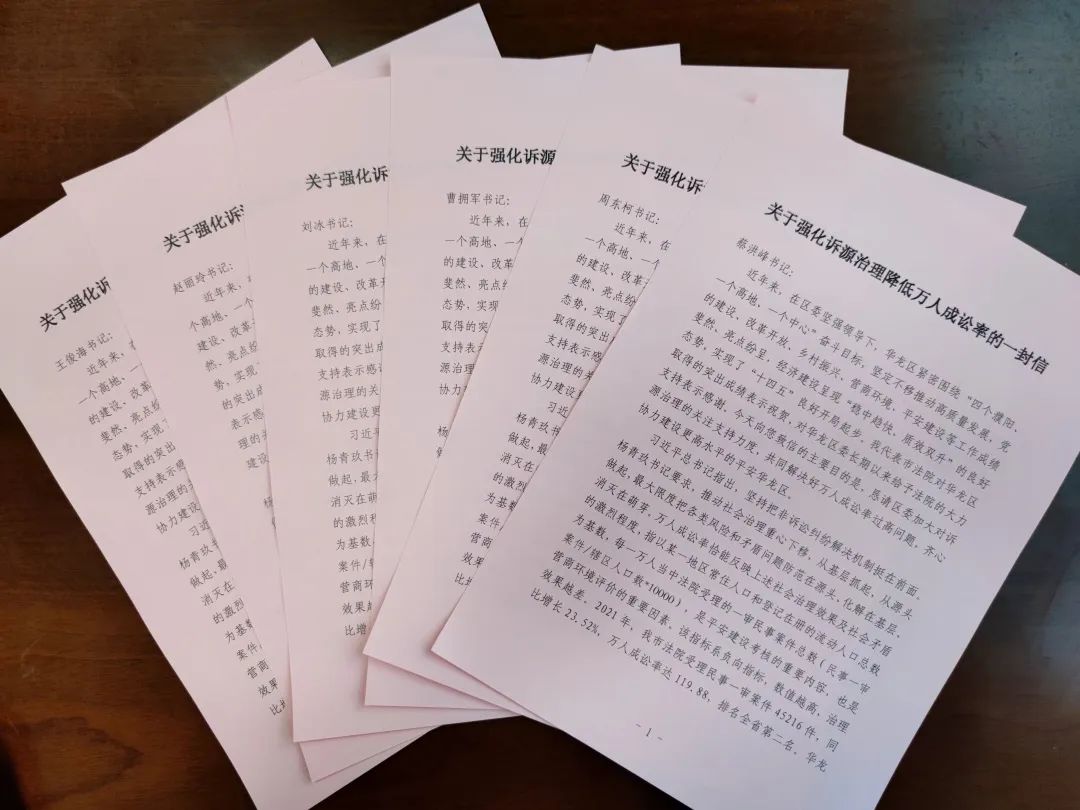 关于强化诉
王俊海书记：
近年来，在
一个高地、一
的建设、改革
斐然、亮点
态势，实现
取得的突出
支持表示感
源治理的
协力建设
习近
杨青玖书
做起、最
消灭在
的激烈
为基数
案件/
营商
效果
关于强化诉
赵丽玲书记：
近年来，
个高地、一个
建设、改革
然、亮点纷
势，实现了
的突出成
表示感谢
理的关
建设
关于强化诉
刘冰书记：
近年来，在
一个高地、一个
的建设、改革开
斐然、亮点纷
态势，实现了
取得的突出成
支持表示感谢
源治理的关
协力建设更
习近平
杨青玖书
做起，最
消灭在萌
的激烈程
为基数
案件/辖
营商环
效果越
比增长
关于强化诉源
曹拥军书记：
近年来，在
一个高地、一
的建设、改
斐然、亮点
态势，实现
取得的突
支持表示
源治理的
协力建
关于强化诉
周东柯书记：
近年来，在
一个高地、一
的建设、改革
斐然、亮点纷
态势，实现了
取得的突出
支持表示感
源治理的关
协力建设更
习近
杨青玖书
做起，最
消灭在萌
的激烈
为基数
案件/
营商环
效果
比增
关于强化诉源治理降低万人成讼率的一封信
蔡洪峰书记：
近年来，在区委坚强领导下，华龙区紧密围绕“四个濮阳、
一个高地、一个中心”奋斗目标，坚定不移推动高质量发展，党
的建设、改革开放、乡村振兴、营商环境、平安建设等工作成绩
斐然、亮点纷呈，经济建设呈现“稳中趋快、质效双升”的良好
态势，实现了“十四五”良好开局起步。我代表市法院对华龙区
取得的突出成绩表示祝贺，对华龙区委长期以来给予法院的大力
支持表示感谢。今天向您致信的主要目的是，恳请区委加大对诉
源治理的关注支持力度，共同解决好万人成讼率过高问题，齐心
协力建设更高水平的平安华龙区。
习近平总书记指出，坚持把非诉讼纠纷解决机制挺在前面。
杨青玖书记要求，推动社会治理重心下移，从基层抓起、从源头
做起，最大限度把各类风险和矛盾问题防范在源头、化解在基层、
消灭在萌芽。万人成讼率恰能反映上述社会治理效果及社会矛盾
的激烈程度，指以某一地区常住人口和登记在册的流动人口总数
为基数，每一万人当中法院受理的一审民事案件总数（民事一审
案件/辖区人口数*10000），是平安建设考核的重要内容，也是
营商环境评价的重要因素，该指标系负向指标，数值越高，治理
效果越差。2021年，我市法院受理民事一审案件45216件，同
比增长23.52%，万人成讼率达119.88，排名全省第二名。华龙
- 1 -